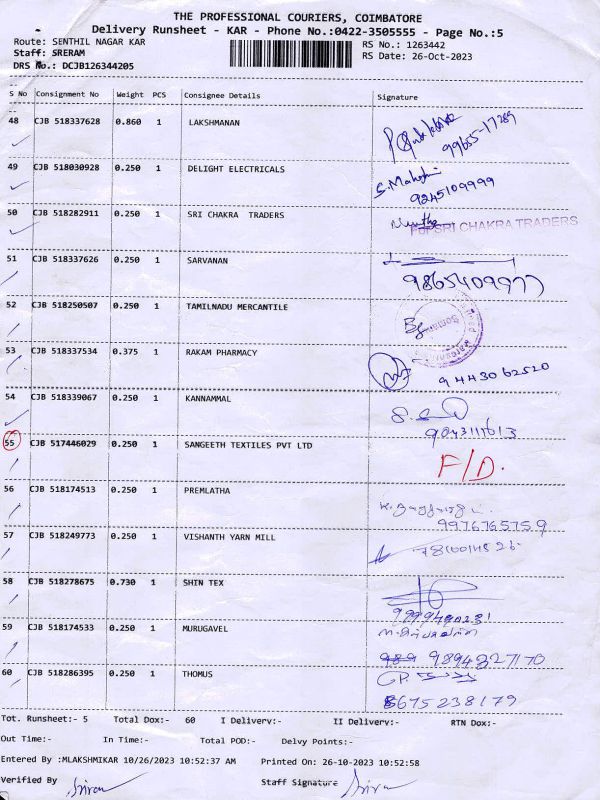 THE PROFESSIONAL COURIERS, COIMBATORE
Delivery Runsheet - KAR - Phone No.:0422-3505555 - Page No.:5
Route: SENTHIL NAGAR KAR
RS No.: 1263442
Staff: SRERAM
RS Date: 26-Oct-2023
DRS No.: DCJB126344205
S No Consignment No Weight PCS Consignee Details Signature
48 CJB 518337628 0.860 1 LAKSHMANAN
99655-17289
49 CJB 518030928 0.250 1 DELIGHT ELECTRICALS
9245109999
50 CJB 518282911 0.250 1 SRI CHAKRA TRADERS
For SRI CHAKRA TRADERS
51 CJB 518337626 0.250 1 SARVANAN
9865409977
52 CJB 518250507 0.250 1 TAMILNADU MERCANTILE
53 CJB 518337534 0.375 1 RAKAM PHARMACY
9443062520
54 CJB 518339067 0.250 1 KANNAMMAL
55 CJB 517446029 0.250 1 SANGEETH TEXTILES PVT LTD F/D.
56 CJB 518174513 0.250 1 PREMLATHA
9976765759
57 CJB 518249773 0.250 1 VISHANTH YARN MILL
58 CJB 518278675 0.730 1 SHIN TEX
59 CJB 518174533 0.250 1 MURUGAVEL
9894327170
60 CJB 518286395 0.250 1 THOMUS
8675238179
Tot. Runsheet:- 5 Total Dox:- 60 I Delivery:- II Delivery:- RTN Dox:-
Out Time:- In Time:- Total POD:- Delvy Points:-
Entered By :MLAKSHMIKAR 10/26/2023 10:52:37 AM Printed On: 26-10-2023 10:52:58
Verified By Staff Signature